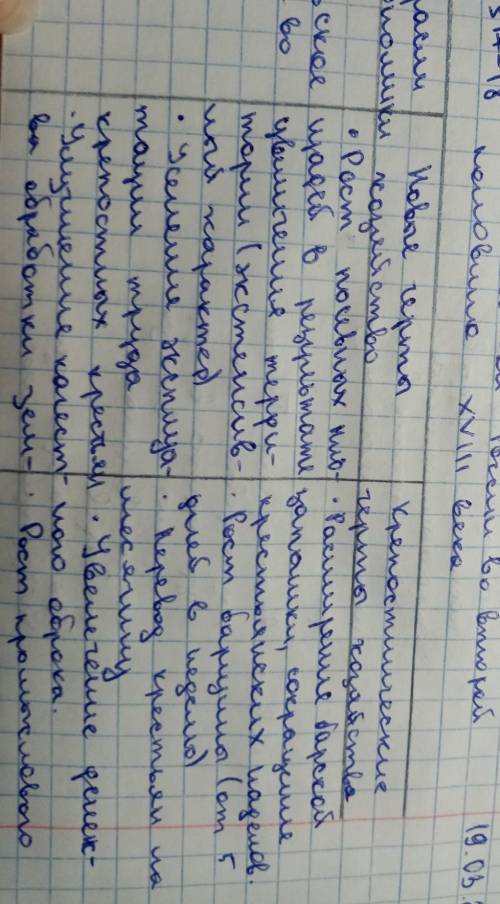 19.03.
России во второй
половине XVIII века
расли
ономики
ское
во
Новые черты
хозяйство
• Рост посевных пло-
щадей в результате
увеличения терри-
тории (экстенсив-
ный характер)
• Усиление эксплуа-
тации труда
крепостных крестьян
• Улучшение качест-
ва обработки зем-
Крепостнические
черты хозяйства
• Расширение барской
запашки, сокращение
крестьянских наделов.
• Рост барщины (от 5
дней в неделю)
• Перевод крестьян на
месячину
• Увеличение денеж-
ного оброка.
• Рост промыслового